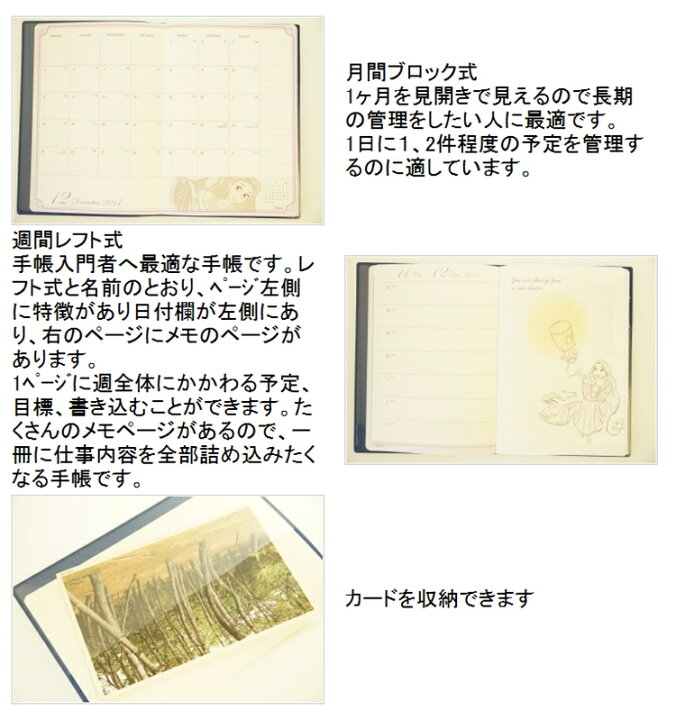 月間ブロック式
1ヶ月を見開きで見えるので長期
の管理をしたい人に最適です。
1日に１、2件程度の予定を管理す
るのに適しています。
12 December 2017
週間レフト式
手帳入門者へ最適な手帳です。レ
フト式と名前のとおり、ﾍﾟｰｼﾞ左側
に特徴があり日付欄が左側にあ
り、右のページにメモのページが
あります。
1ﾍﾟｰｼﾞに週全体にかかわる予定、
目標、書き込むことができます。た
くさんのメモページがあるので、一
冊に仕事内容を全部詰め込みたく
なる手帳です。
You can always find
a new dream.
カードを収納できます